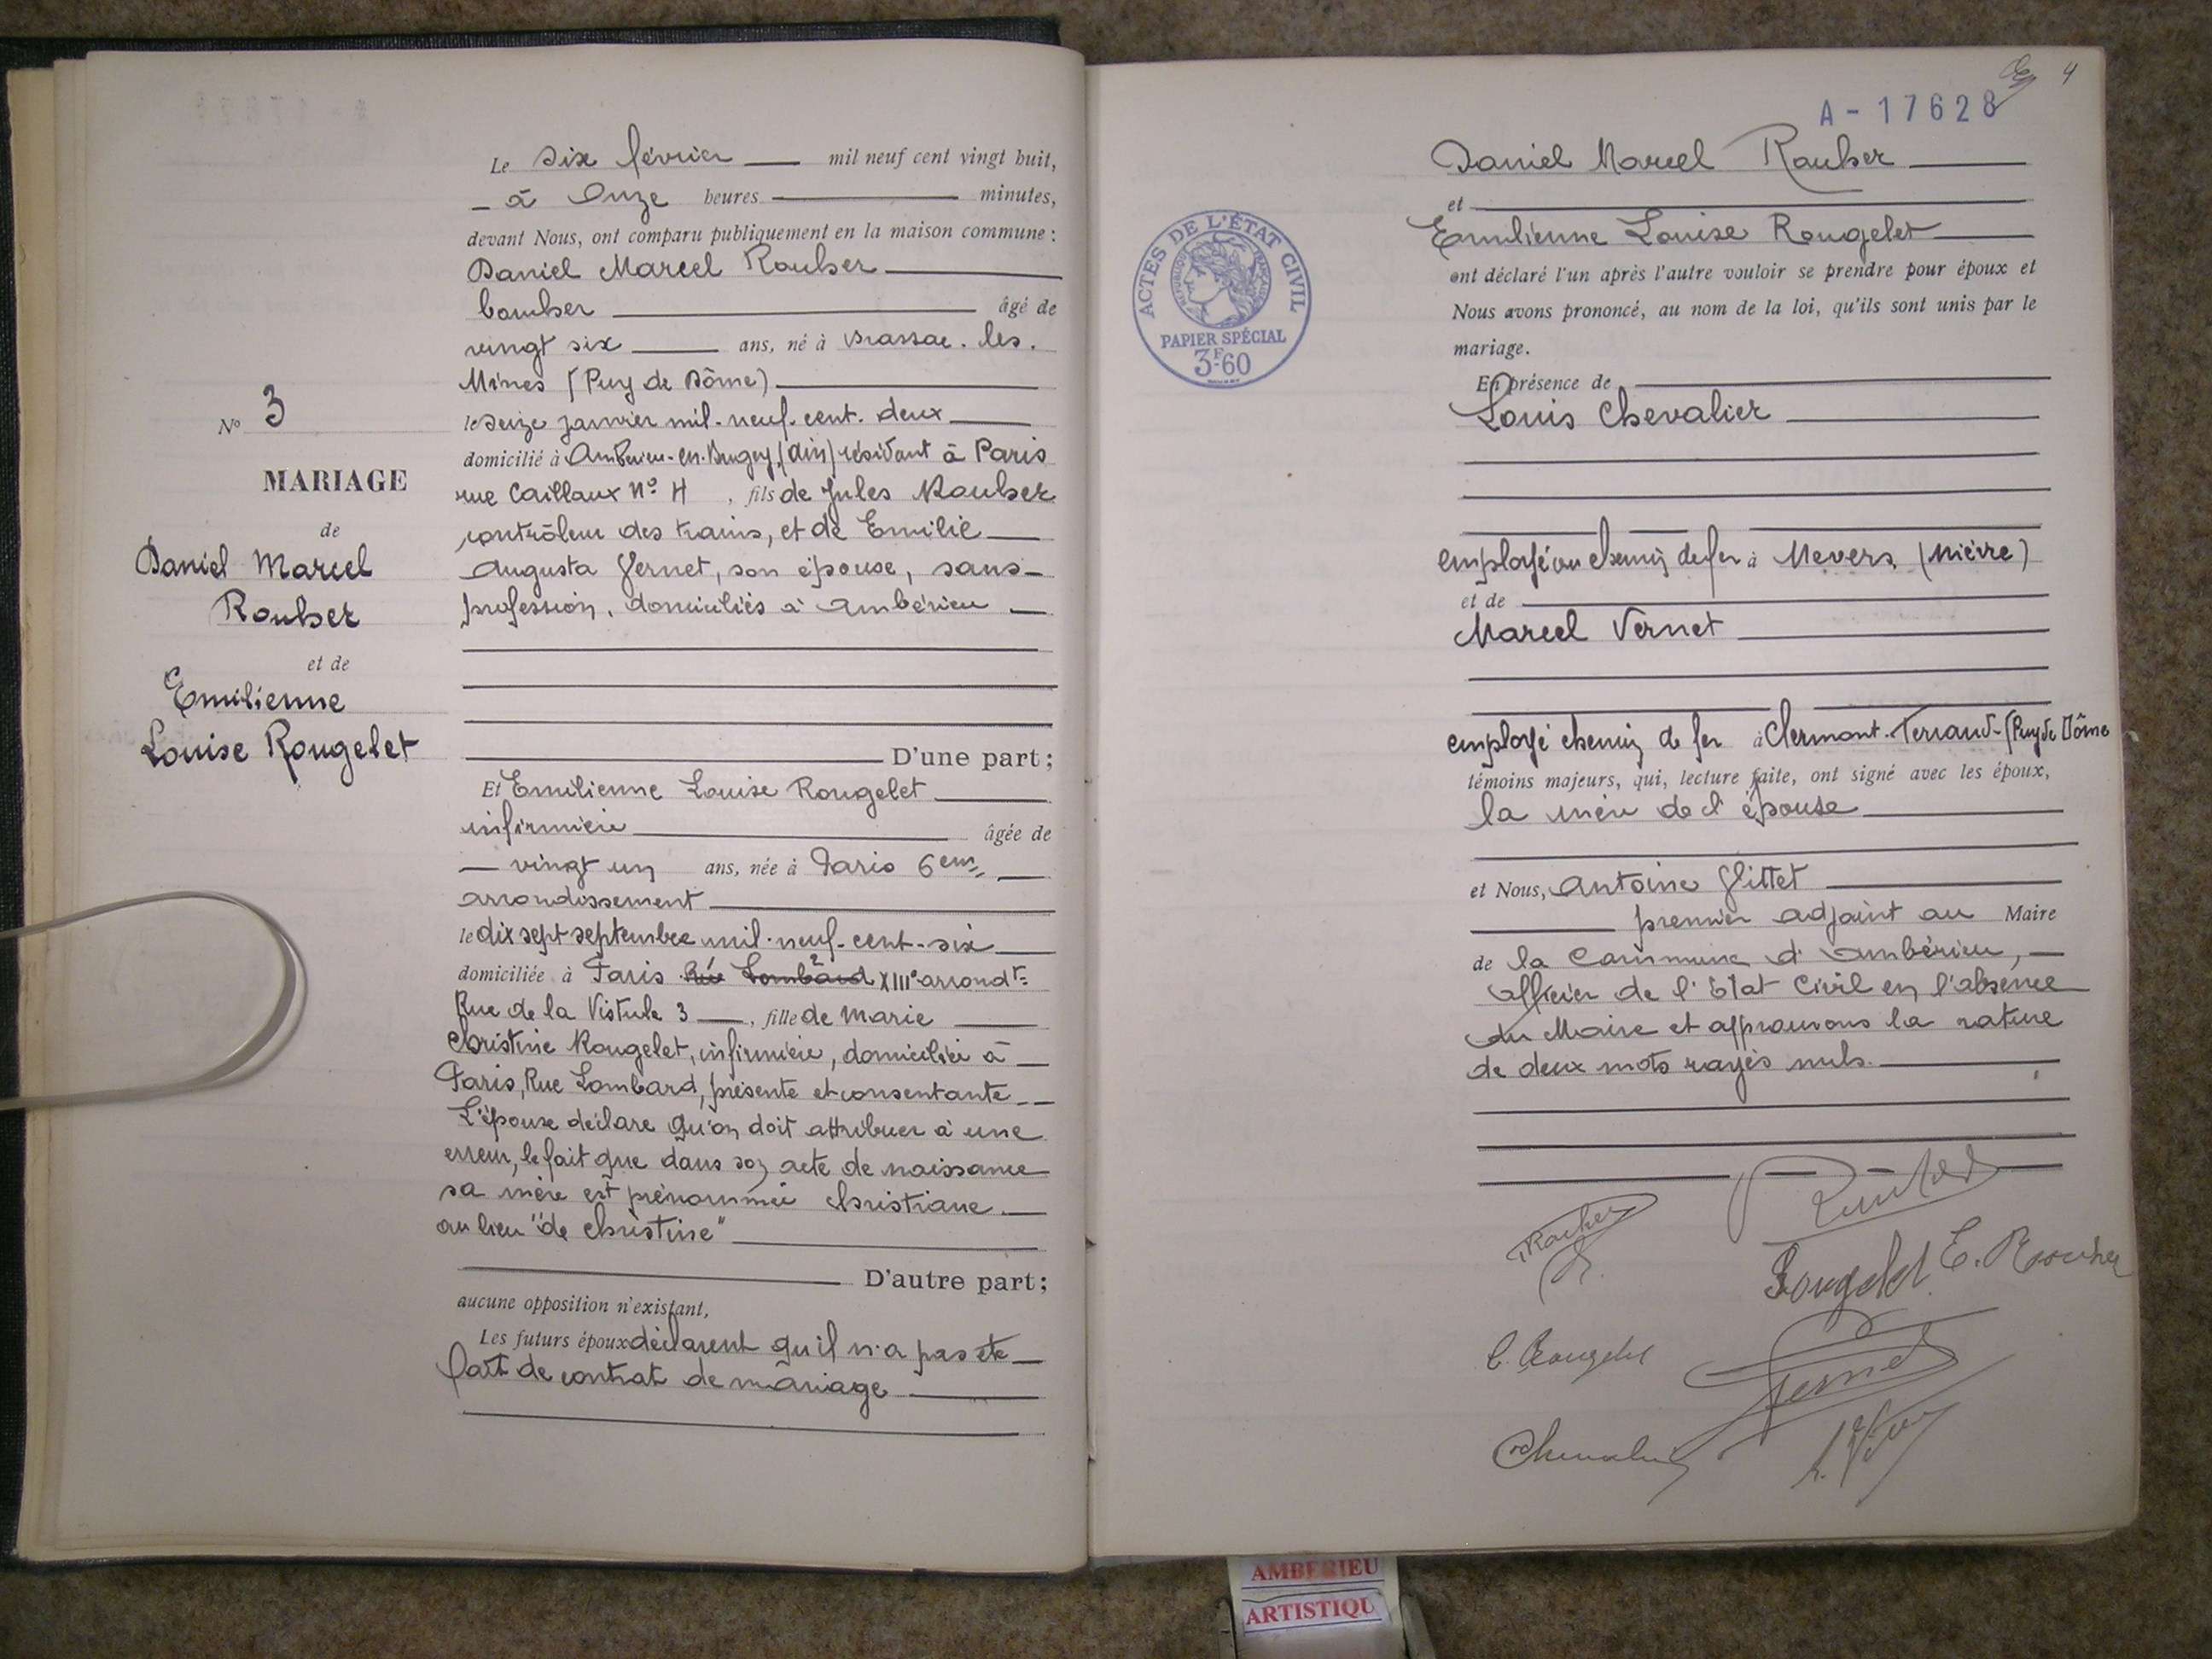 Le Dix février mil neuf cent vingt huit,
à Onze heures minutes,
devant Nous, ont comparu publiquement en la maison commune :
Daniel Marcel Rouher
âgé de
vingt six ans, né à Brassac. les.
Mines (Puy de Dôme)
le seize janvier mil. neuf. cent. deux
domicilié à Ambérieu-en-Bugey, (Ain) résidant à Paris
rue Caillaux N° 4, fils de Jules Rouher
contrôleur des trains, et de Emilie
Augusta Vernet, son épouse, sans
profession, domiciliés à Ambérieu
N° 3
MARIAGE
de
Daniel Marcel
Rouher
et de
Emilienne
Louise Rougelet
D'une part ;
Et Emilienne Louise Rougelet
infirmière âgée de
vingt un ans, née à Paris 6em
arrondissement
le dix sept septembre mil. neuf. cent. six
domiciliée à Paris Rue Lombard XIIIe arrondt
Rue de la Vistule 3, fille de Marie
Christine Rougelet, infirmière, domiciliée à
Paris, Rue Lombard, présente et consentante
L'épouse déclare qu'on doit attribuer à une
erreur, le fait que dans son acte de naissance
sa mère est prénommée Christiane
au lieu "de Christine"
D'autre part ;
aucune opposition n'existant,
Les futurs époux déclarent qu'il n'a pas été
fait de contrat de mariage
4
A - 17628
Daniel Marcel Rouher
et
Emilienne Louise Rougelet
ont déclaré l'un après l'autre vouloir se prendre pour époux et
Nous avons prononcé, au nom de la loi, qu'ils sont unis par le
mariage.
ACTES DE L'ÉTAT CIVIL
RÉPUBLIQUE FRANÇAISE
PAPIER SPÉCIAL
3F-60
En présence de
Louis Chevalier
employé au chemin de fer à Nevers (Nièvre)
et de
Marcel Vernet
employé chemin de fer à Clermont-Ferrand-(Puy de Dôme
témoins majeurs, qui, lecture faite, ont signé avec les époux,
la mère de l'épouse
et Nous, Antoine
premier adjoint au Maire
de la Commune d'Ambérieu,
officier de l'Etat Civil en l'absence
du Maire et approuvons la rature
de deux mots rayés nuls.
Rouher
Rougelet E. Rouher
C. Rougelet
Vernet
Chevalier
AMBERIEU
ARTISTIQU